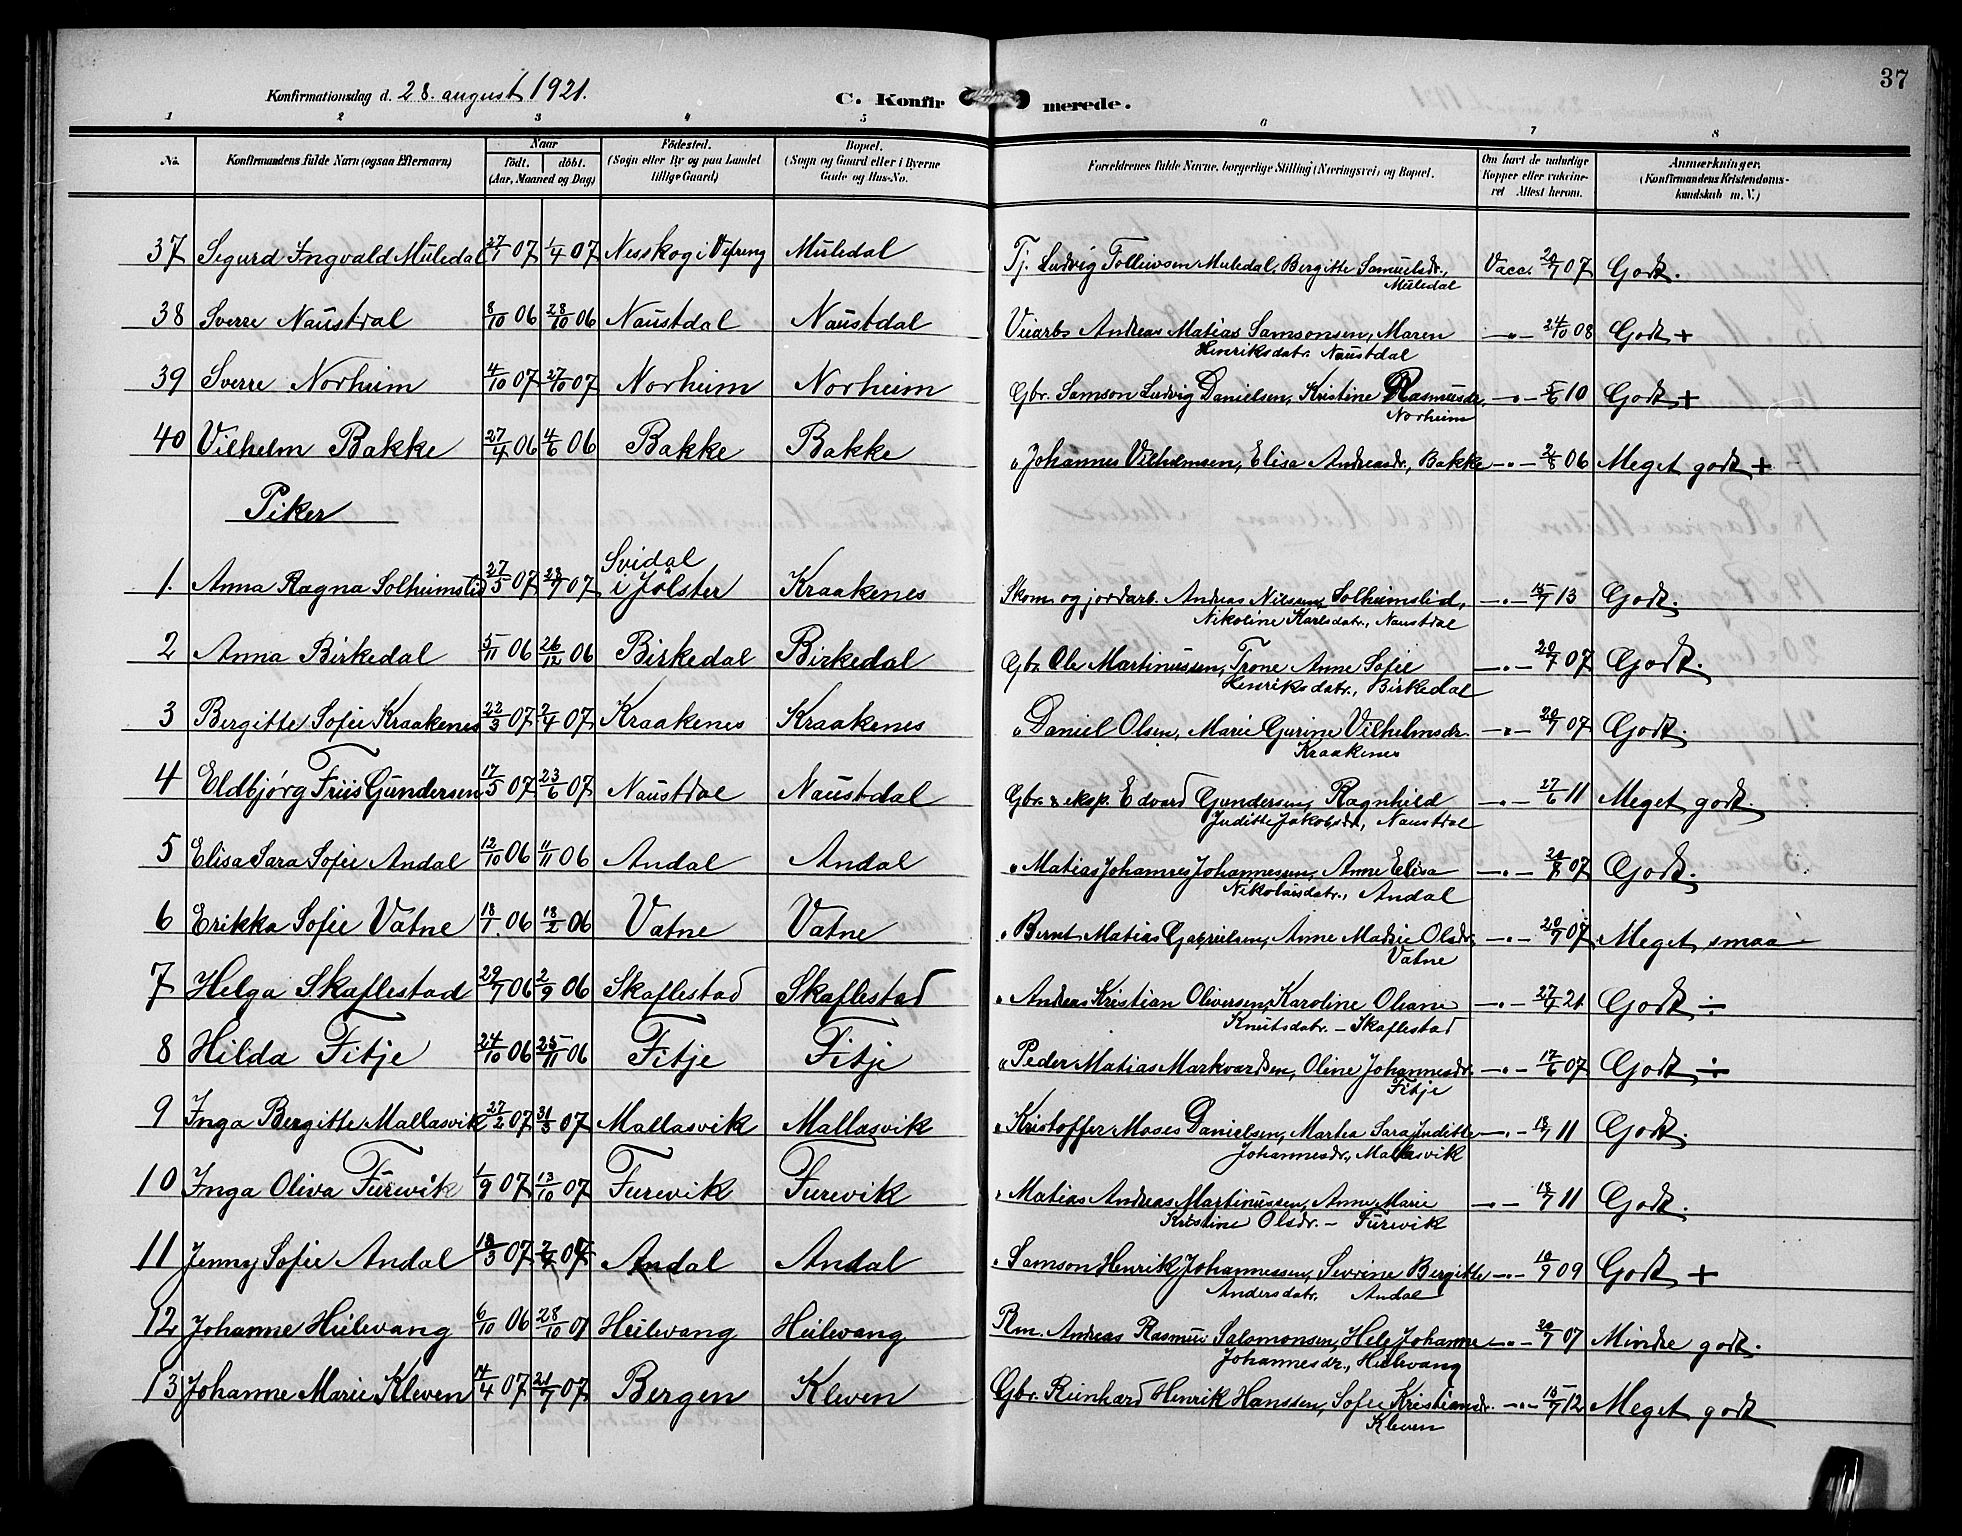 37
Konfirmationsdag d. 28. august 1921.
C. Konfirmerede.
1 2 3 4 5 6 7 8
No. Konfirmandens fulde Navn (ogsaa Efternavn) Naar født. døbt. (Aar, Maaned og Dag) Fødested. (Sogn eller By og paa Landet tillige Gaard) Bopæl. (Sogn og Gaard eller i Byerne Gade og Hus-No. Forældrenes fulde Navne, borgerlige Stilling (Næringsvei) og Bopæl. Om havt de naturlige Kopper eller vakcineret Attest herom. Anmærkninger. (Konfirmandens Kristendomskundskab m. V.)
37 Sigurd Ingvald Muledal 27/1 07 1/4 07 Nesskog i Vefring Muledal Tj. Ludvig Tolleivsen Muledal, Bergitte Samuelsdr., Vacc. 20/7 07 Godt.
Muledal
38 Sverre Naustdal 8/10 06 28/10 06 Naustdal Naustdal Veiarb. Andreas Matias Samsonsen, Maren -"- 24/10 08 Godt +
Henriksdatr. Naustdal
39 Sverre Norheim 4/10 07 27/10 07 Norheim Norheim Gbr. Samson Ludvig Danielsen, Kristine Rasmusdr. -"- 5/6 10 Godt +
Norheim
40 Vilhelm Bakke 27/4 06 4/6 06 Bakke Bakke " Johannes Vilhelmsen, Elisa Andreasdr., Bakke -"- 2/8 06 Meget godt +
Piker
Svidal
1. Anna Ragna Solheimslid 27/5 07 28/7 07 i Jølster Kraakenes Skom. og jordarb. Andreas Nilsen Solheimslid, -"- 15/7 13 Godt.
Nikoline Karlsdatr., Naustdal
2 Anna Birkedal 5/11 06 26/12 06 Birkedal Birkedal Gbr. Ole Martinussen, Trone Anne Sofie -"- 20/7 07 Godt.
Henriksdatr., Birkedal
3 Bergitte Sofie Kraakenes 22/3 07 2/4 07 Kraakenes Kraakenes " Daniel Olsen, Marie Gurine Vilhelmsdr. -"- 20/7 07 Godt.
Kraakenes
4 Eldbjørg Friis Gundersen 17/5 07 23/6 07 Naustdal Naustdal Gbr. & eksp. Edvard Gundersen, Ragnhild -"- 27/6 11 Meget godt.
Juditte Jakobsdr., Naustdal
5 Elisa Sara Sofie Andal 12/10 06 11/11 06 Andal Andal " Matias Johannes Johannessen, Anne Elisa -"- 07 Godt.
Nikolaisdatr., Andal
6 Erikka Sofie Vatne 18/1 06 18/2 06 Vatne Vatne " Bernt Matias Gabrielsen, Anne Madsie Olsdr. -"- 20/7 07 Meget smaa
Vatne
7 Helga Skaflestad 29/7 06 2/9 06 Skaflestad Skaflestad " Andreas Kristian Oliversen, Karoline Oliane -"- 27/7 21. Godt ÷
Knutsdatr. - Skaflestad
8 Hilda Fitje 24/10 06 25/11 06 Fitje Fitje " Peder Matias Markvardsen, Oline Johannesdr. -"- 17/6 07 Godt ÷
Fitje
9 Inga Bergitte Mallasvik 27/2 07 31/3 07 Mallasvik Mallasvik " Kristoffer Moses Danielsen, Martea Sara Juditte -"- 18/7 11 Godt.
Johannesdr., Mallasvik
10 Inga Oliva Furevik 1/9 07 13/10 07 Furevik Furevik " Matias Andreas Martinussen, Anne Marie -"- 18/7 11 Godt.
Kristine Olsdr. - Furevik
11 Jenny Sofie Andal 18/3 07 07 Andal Andal " Samson Henrik Johannessen, Sevrine Bergitte -"- 10/9 09 Godt +
Andersdatr. Andal
12 Johanne Heilevang 6/10 06 28/10 Heilevang Heilevang Rm. Andreas Rasmus Salomonsen, Hele Johanne -"- 20/7 07 Mindre godt.
Johannesdr., Heilevang
13 Johanne Marie Kleven 14/4 07 21/7 07 Bergen Kleven Gbr. Reinhard Henrik Hanssen, Sofie Kristiansdr. -"- 15/7 12 Meget godt
Kleven